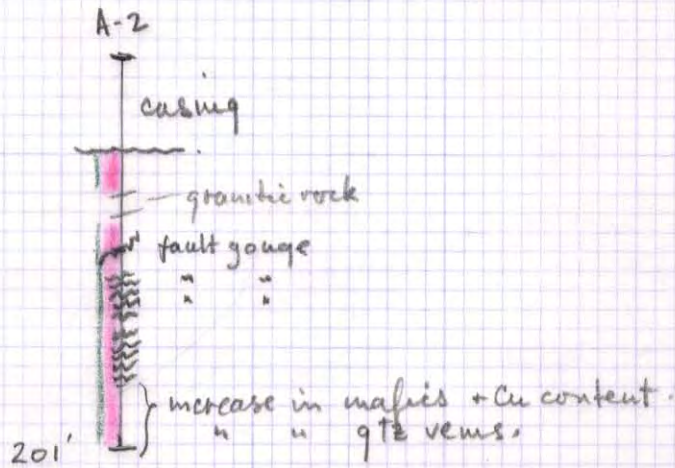 A-2
casing
granitic rock
fault gouge
" "
" "
increase in mafics + Cu content.
" " qtz veins.
201'